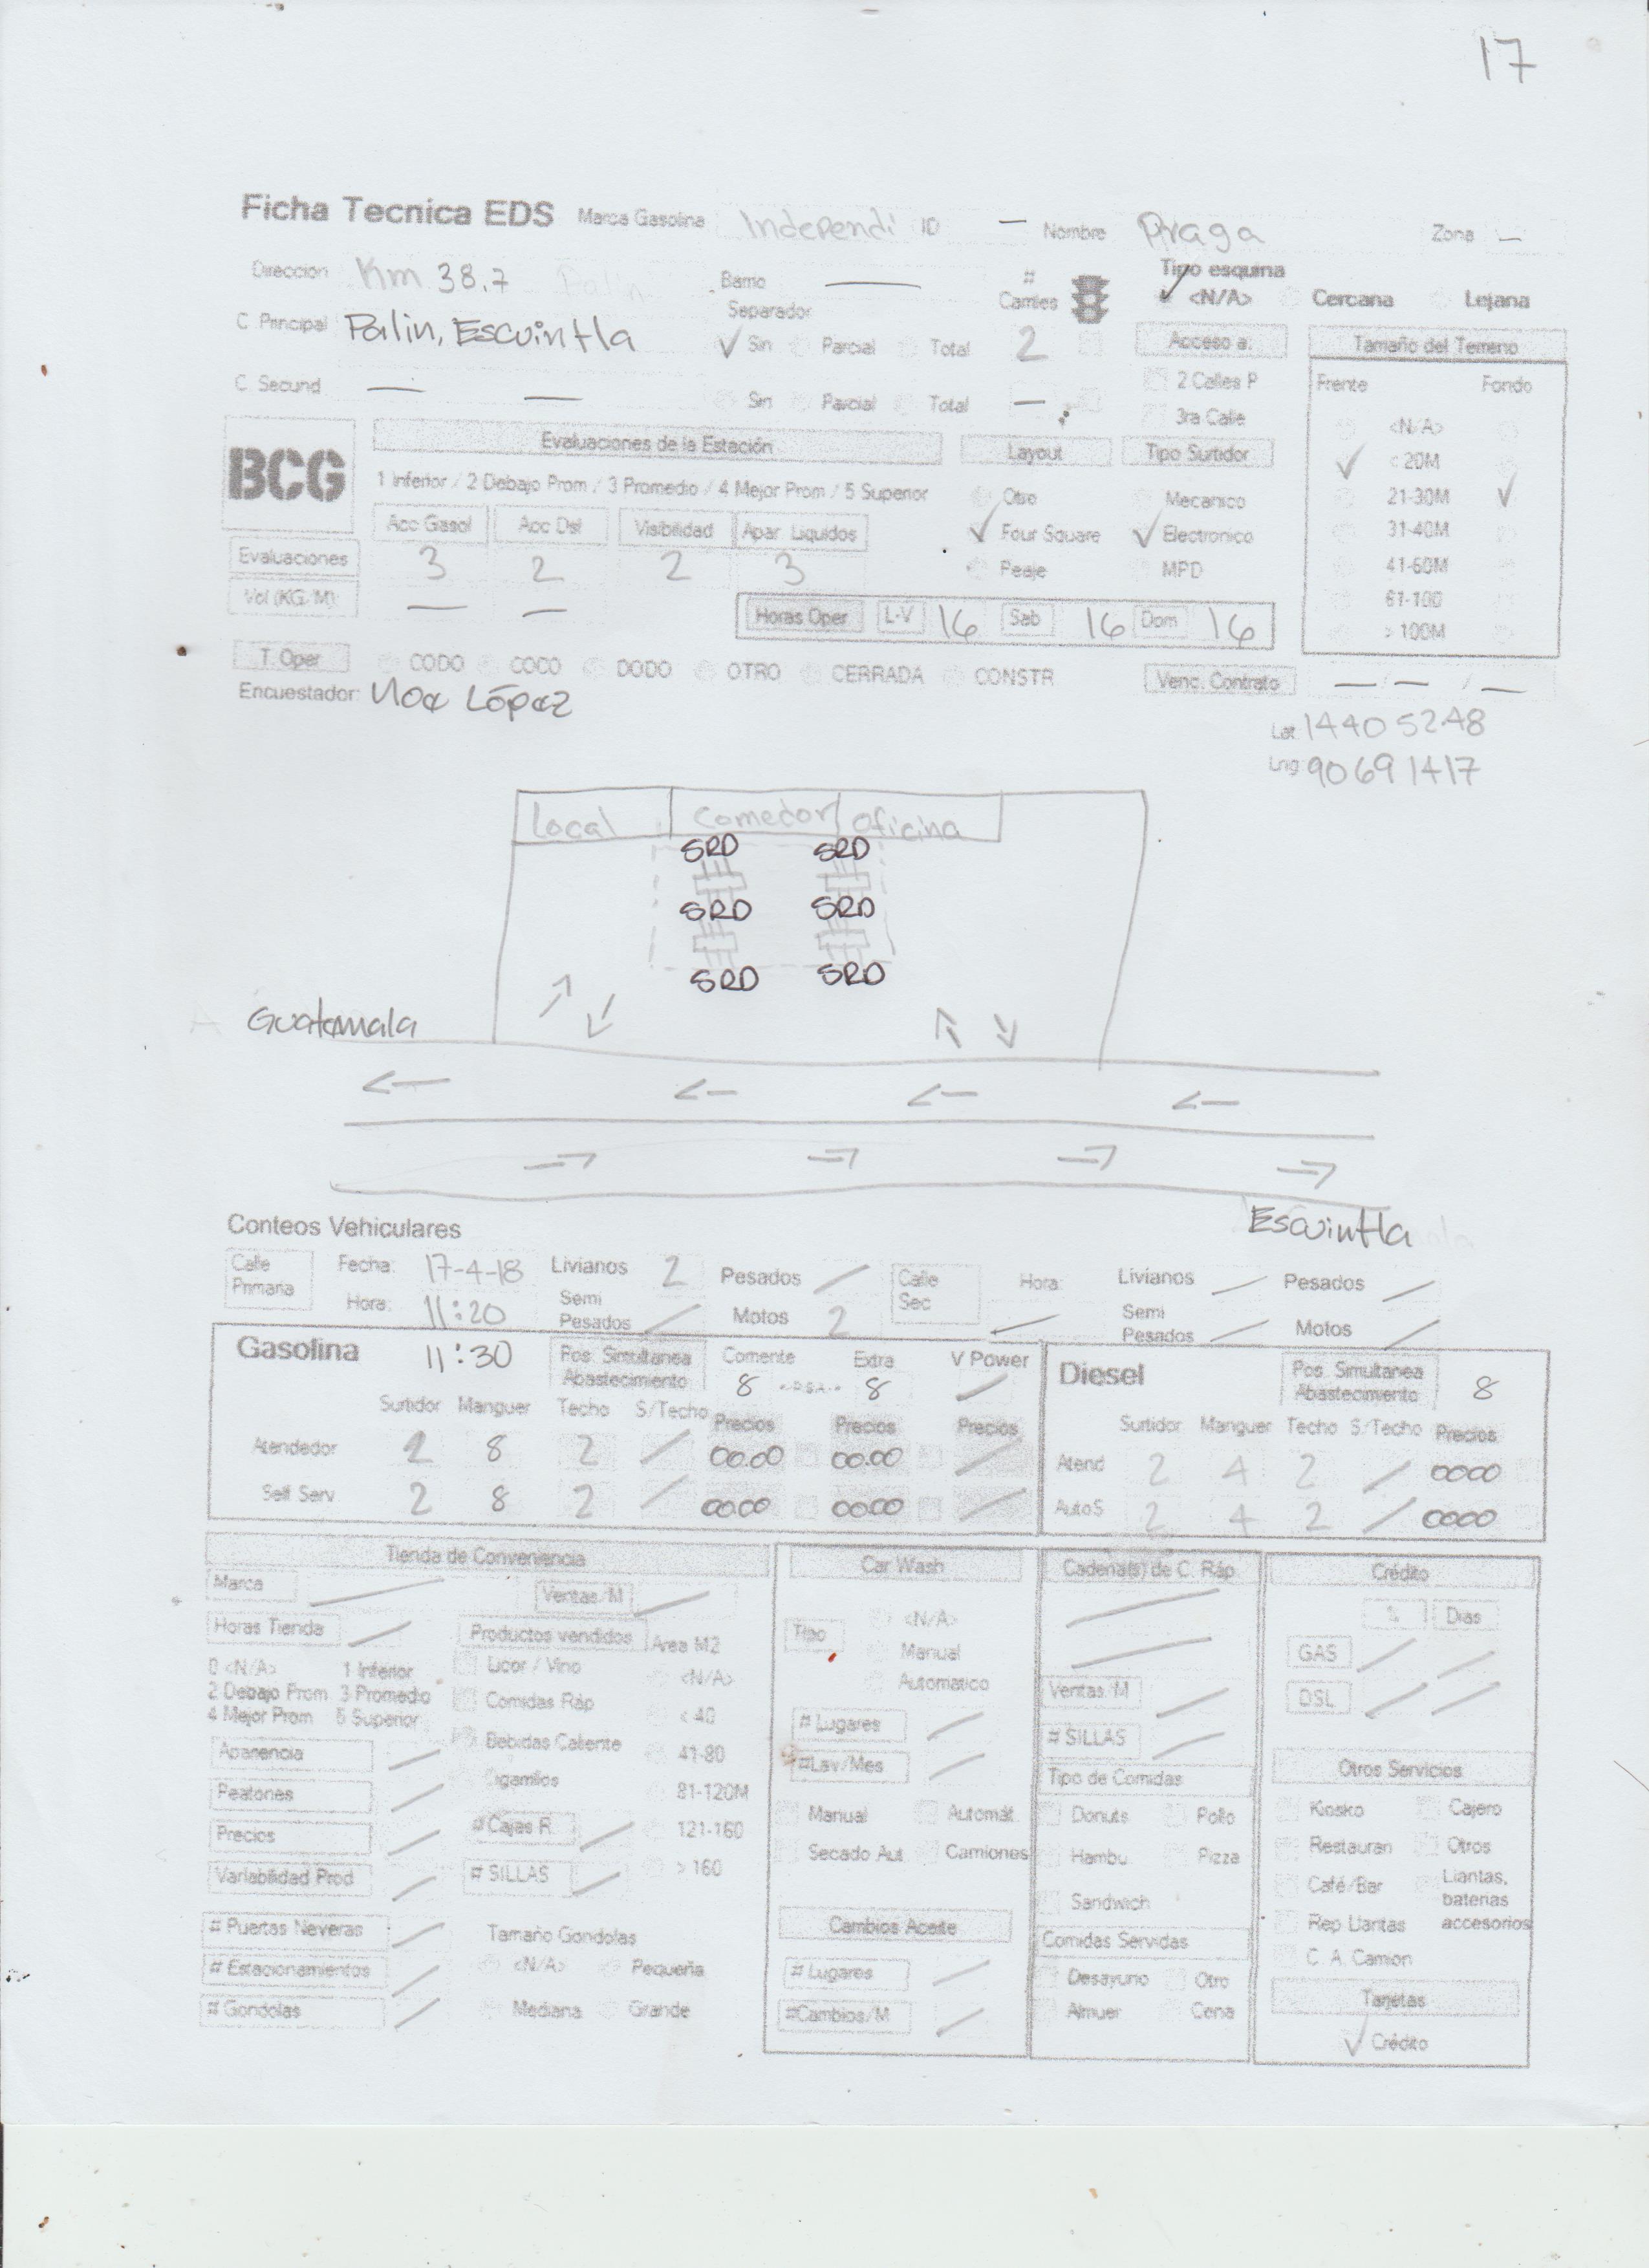 17
Ficha Tecnica EDS Marca Gasolina Independi ID — Nombre Praga Zona —
Direccion Km 38.7 Palin Barrio — # Carriles Tipo esquina
<N/A> Cercana Lejana
C Principal Palin, Escuintla Separador
Sin Parcial Total 2 Acceso a: Tamaño del Terreno
C. Secund — — Sin Parcial Total — 2 Calles P Frente Fondo
3ra Calle <N/A>
BCG Evaluaciones de la Estación Layout Tipo Surtidor < 20M
1 Inferior / 2 Debajo Prom / 3 Promedio / 4 Mejor Prom / 5 Superior Otro Mecanico 21-30M
Acc Gasol Acc Dsl Visibilidad Apar Liquidos Four Square Electronico 31-40M
Evaluaciones 3 2 2 3 Peaje MPD 41-60M
Vol (KG/M) — — 61-100
Horas Oper L-V 16 Sab 16 Dom 16 > 100M
T. Oper CODO COCO DODO OTRO CERRADA CONSTR Venc. Contrato — / — / —
Encuestador: López
Lat 1440 5248
Lng 90691417
Local Comedor Oficina
SRD SRD
SRD SRD
SRD SRD
Guatemala
Escuintla
Conteos Vehiculares
Calle Primaria Fecha: 17-4-18 Livianos 2 Pesados / Calle Sec Hora: Livianos / Pesados /
Hora: 11:20 Semi Pesados / Motos 2 / Semi Pesados / Motos /
Gasolina 11:30 Pos. Simultanea Abastecimiento Corriente 8 Extra 8 V Power / Diesel Pos. Simultanea Abastecimiento 8
Surtidor Manguer Techo S/Techo Precios Precios Precios Surtidor Manguer Techo S/Techo Precios
Atendedor 2 8 2 / 00.00 00.00 / Atend 2 4 2 / 0000
Self Serv 2 8 2 / 00.00 00.00 / AutoS 2 4 2 / 0000
Tienda de Conveniencia Car Wash Cadena(s) de C. Ráp Crédito
Marca / Ventas/M / Tipo <N/A> % Dias
Horas Tienda / Productos vendidos Area M2 Manual GAS / /
0 <N/A> 1 Inferior Licor / Vino <N/A> Automatico Ventas/M / DSL / /
2 Debajo Prom 3 Promedio Comidas Ráp < 40 # Lugares / # SILLAS /
4 Mejor Prom 5 Superior Bebidas Caliente 41-80 #Lav/Mes / Tipo de Comidas Otros Servicios
Apariencia / Cigarrillos 81-120M Manual Automát Donuts Pollo Kiosko Cajero
Peatones / # Cajas R. / 121-160 Secado Aut Camiones Hambu Pizza Restauran Otros
Precios / # SILLAS / > 160 Sandwich Café/Bar Llantas, baterias accesorios
Variabilidad Prod / Rep Llantas
# Puertas Neveras / Tamaño Gondolas Cambios Aceite Comidas Servidas C. A. Camion
# Estacionamientos / <N/A> Pequeña # Lugares / Desayuno Otro Tarjetas
# Gondolas / Mediana Grande #Cambios/M / Almuer Cena Crédito